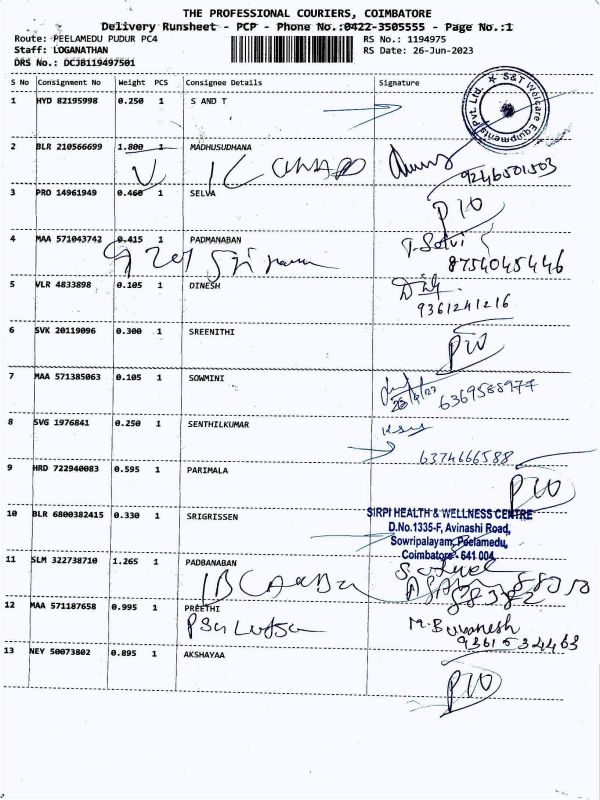 THE PROFESSIONAL COURIERS, COIMBATORE
Delivery Runsheet - PCP - Phone No.:0422-3505555 - Page No.:1
Route: PEELAMEDU PUDUR PC4 RS No.: 1194975
Staff: LOGANATHAN RS Date: 26-Jun-2023
DRS No.: DCJB119497501
S No Consignment No Weight PCS Consignee Details Signature
1 HYD 82195998 0.250 1 S AND T
S&T Welcare Equipments Pvt. Ltd.
2 BLR 210566699 1.800 1 MADHUSUDHANA
9246501503
3 PRO 14961949 0.460 1 SELVA
4 MAA 571043742 0.415 1 PADMANABAN
T. Selvi
8754045446
5 VLR 4833898 0.105 1 DINESH
9361241216
6 SVK 20119096 0.300 1 SREENITHI
7 MAA 571385063 0.105 1 SOWMINI
6369588977
8 SVG 1976841 0.250 1 SENTHILKUMAR
6374666588
9 HRD 722940083 0.595 1 PARIMALA
10 BLR 6800382415 0.330 1 SRIGRISSEN
SIRPI HEALTH & WELLNESS CENTRE
D.No.1335-F, Avinashi Road,
Sowripalayam, Peelamedu,
Coimbatore - 641 004
11 SLM 322738710 1.265 1 PADBANABAN
12 MAA 571187658 0.995 1 PREETHI
M. Buvanesh
9361534463
13 NEY 50073802 0.895 1 AKSHAYAA